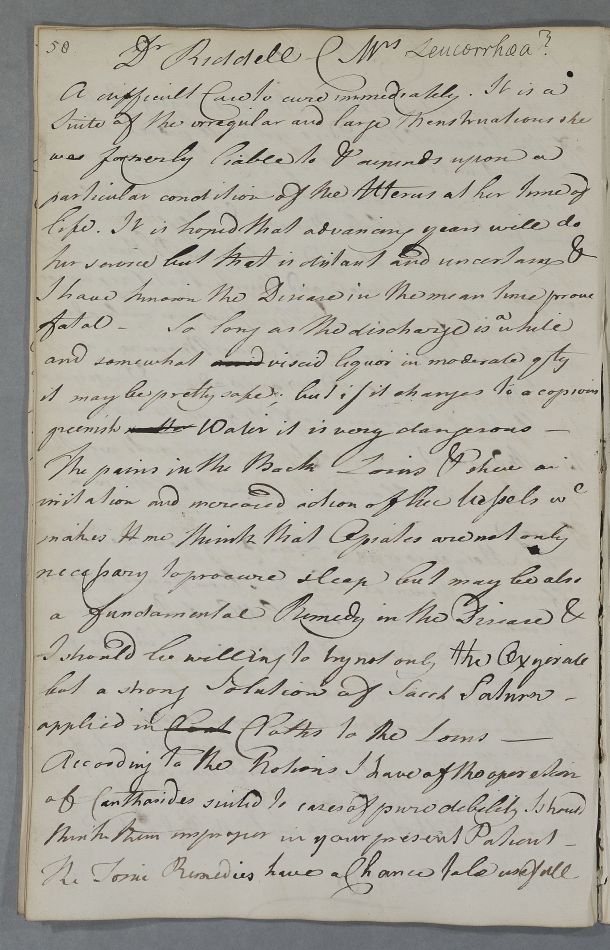 50 Dr Riddell (Mrs Leucorrhœa?)
A difficult Case to cure immediately. It is a
Suite of the irregular and large Menstruations she
was formerly liable to & depends upon a
particular condition of the Uterus at her time of
life. It is hoped that advancing years will do
her service but that is distant and uncertain, &
I have known the Disease in the mean time prove
fatal – So long as the discharge is a white
and somewhat and viscid liquor in moderate qty
it may be pretty safe. but if it changes to a copious
greenish Water it is very dangerous –
The pains in the Back Loins &c shew an
irritation and increased action of the Vessels wc
makes me think that Opiates are not only
necessary to procure sleep but may be also
a fundamental Remedy in the Disease &
I should be willing to try not only the Oxycrate
but a strong Solution of Sacch Saturn –
applied in Cloths to the Loins –
According to the Notions I have of the operation
of Cantharides suited to cases of pure debility I should
think them improper in your present Patient –
The Tonic Remedies have a Chance to be usefull